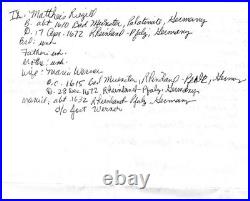 Matthais
B. abt 1610 Bad Muenster, Palatinate, Germany
D. 17 Apr. 1672 Rheinland-Pfalz, Germany
Bel: und.
Father: und.
Mother: und.
Wife: Maria Werner
B.C. 1615 Bad Muenster, Rheinland-Pfalz, Germany
D. 28 Dec 1672 Rheinland-Pfalz, Germany
married, abt 1632 Rheinland-Pfalz, Germany
d/o Jost Werner